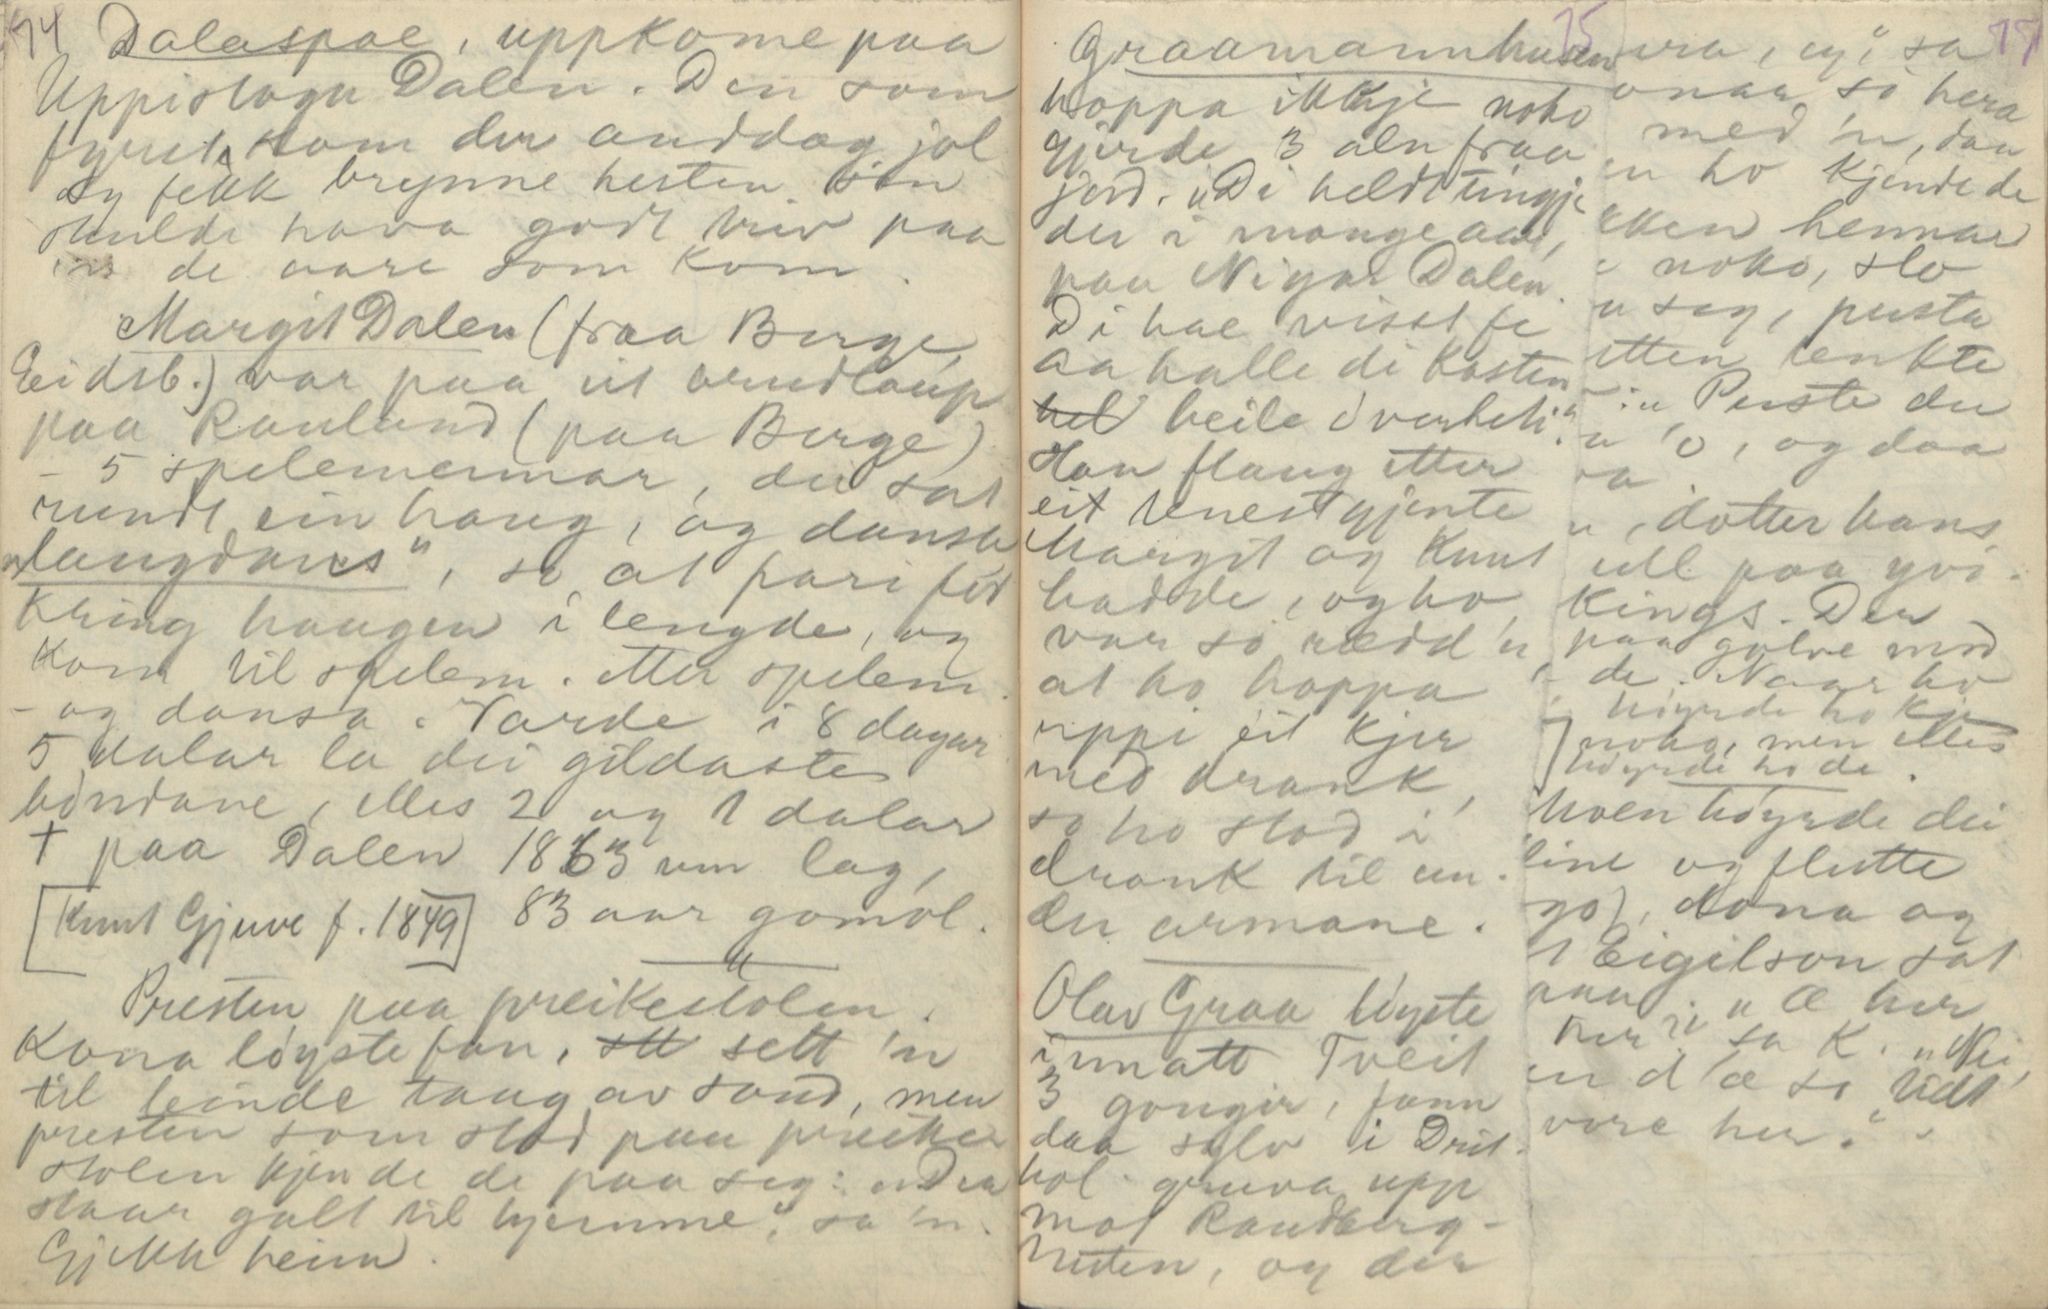 74
Dalaspae, uppkome paa
Uppistogu Dalen. Den som
fyrst kom der anddag jol
og fekk brynne hesten sin
skulde hava godt triv paa
'n de aare som kom.
Margit Dalen (fraa Berge,
Eidsb.) var paa eit brudlaup
paa Rauland (paa Berge)
- 5 spelemennar, dei sat
rundt ein haug, og dansa
"langdans", so at pari for
kring haugen i lengde, og
kom til spelem. etter spelem.
- og dansa. Varde i 8 dagar
5 dalar la dei gildaste
bøndane, elles 2 og 1 dalar
† paa Dalen 1863 um lag,
[Knut Gjuve f. 1849] 83 aar gomol.
Presten paa preikestolen.
Kona løyste fan, sett 'n
til binde taug av sand, men
presten som stod paa preike
stolen kjende de paa seg: "Dæ
staar gale til hjemme", sa 'n.
Gjekk heim.
75
Graamannhusen
hoppa ikkje noko
gjerde 3 aln fraa
jord. "Di heldt tingje
der i mange aar,
paa Nigar Dalen.
Di hae visst fe
aa halle di kosten
heile
Han flaug etter
eit tenestgjente
Margit og Knut
hadde, og ho
var so rædd 'n
at ho hoppa
uppi eit kjer
med drank,
so ho stod i
drank til un-
der armane.
Olav Graa løyste
inatt Tveit
3 gonger, fann
daa sylv i Drit-
hol gruva upp
mot Raudberg-
nuten, og der
75
era, eg," sa
onaa, so hera
med 'n, daa
ho kjende de
ken hennar
noko, slo
seg, pusta
etten tenkte
"Puste du
'o, og daa
dotter hans
paa gvi-
kings. Den
paa golve med
de. Naar ho
høyrde ho kje
noko, men elles
høyrde ho de.
høyrde dei
line og flutte
go), dona og
Eigilson sat
"Æ her
her" sa K. "Nei,
d' æ so vidt
vore her."